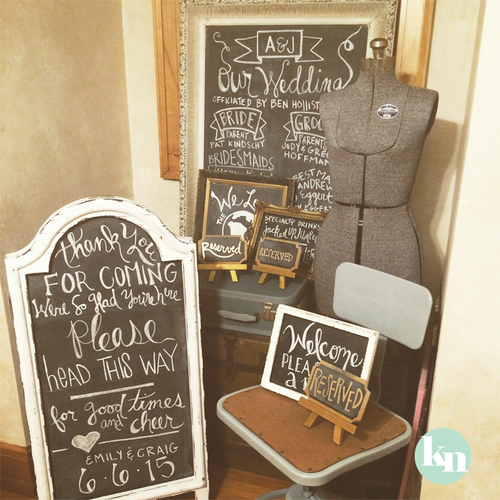 A&J
Our Wedding
OFFICIATED BY BEN HOLLIST
BRIDE
PARENT
PAT KINDSCHY
BRIDESMAIDS
GROO
PARENTS
JUDY & GREG
HOFFMAN
BEST MA
ANDREW
Eggert
We Lo
THE
Reserved
SPECIALTY DRINKS
Jacked Up
RESERVED
Thank You
FOR COMING
We're So Glad You're here
Please
head THIS WAY
for good times
and cheer
EMILY & CRAIG
6·6·15
Welcome
PLEA
A
RESERVED
kn